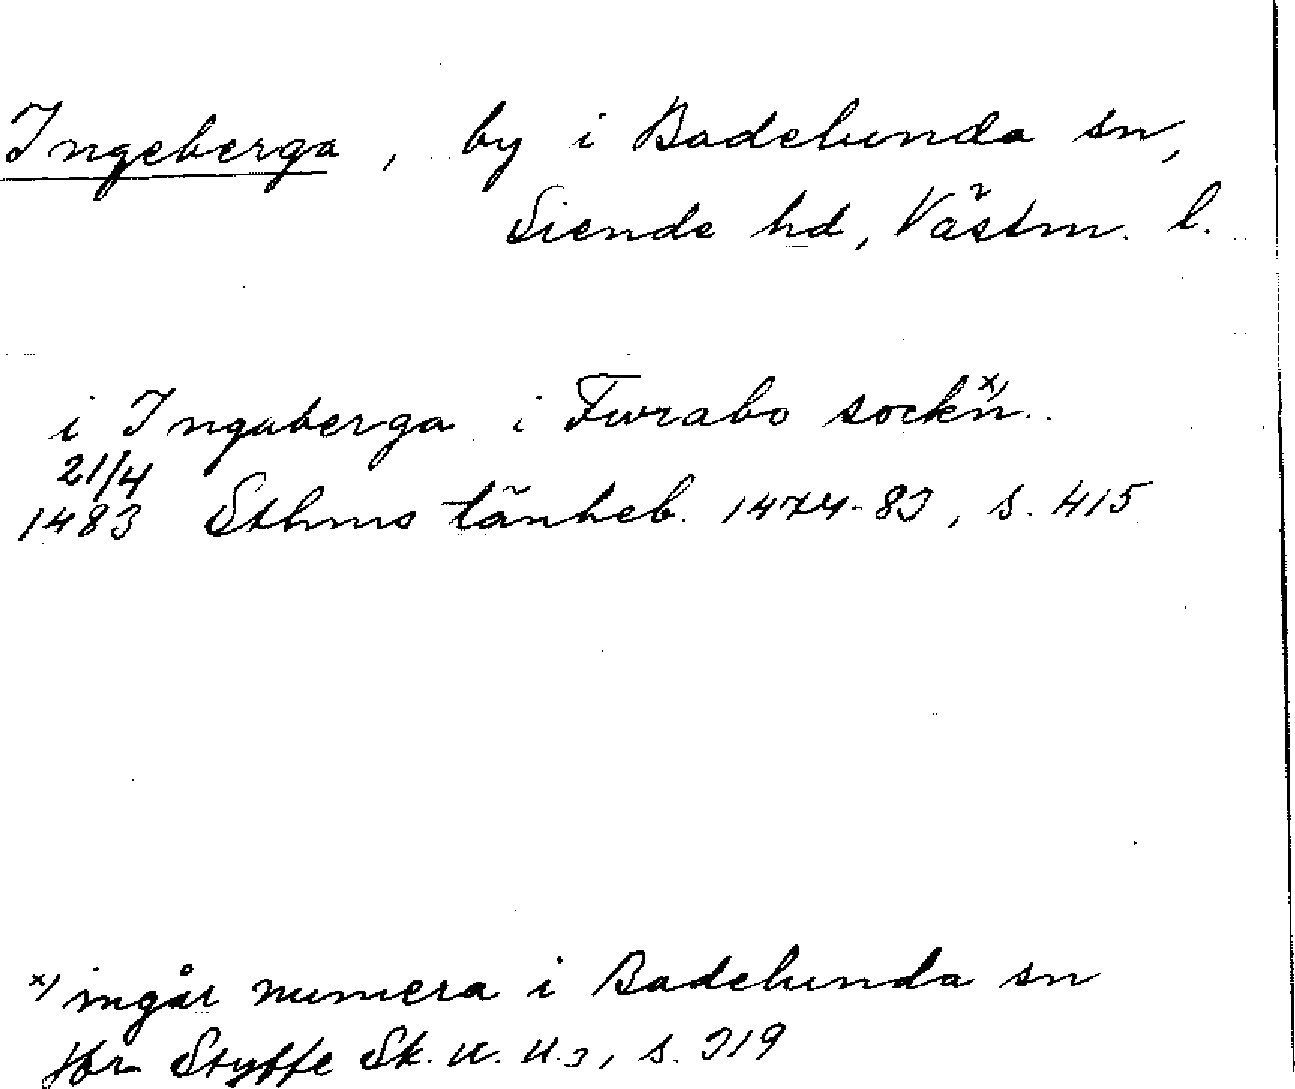 Ingeberga, by i Badelunda sn,
Siende hd, Västm. l.
i Ingaberga i Furabo sockn x)
21/4
1483 Sthms tänkeb. 1474-83, s. 415
x) ingår numera i Badelunda sn
jfr Styffe Sk. u. U.3, s. 319